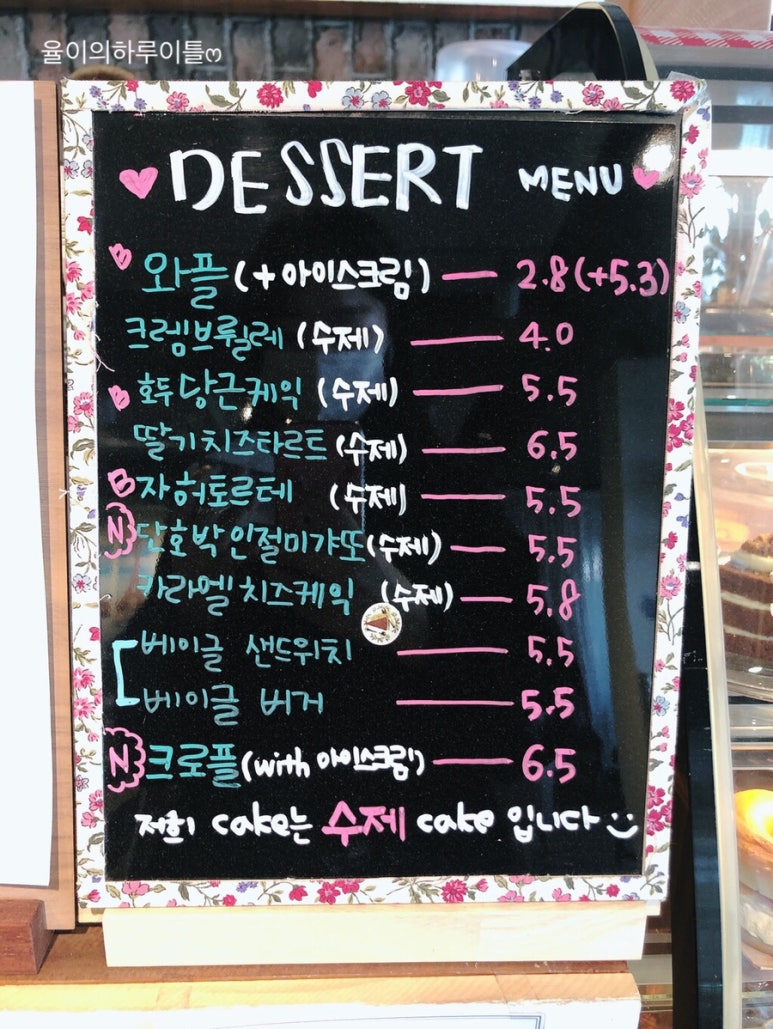 율이의하루이틀ෆ
DESSERT MENU
B 와플 (+아이스크림) — 2.8(+5.3)
크렘브륄레 (수제) — 4.0
B 호두당근케익 (수제) — 5.5
딸기치즈타르트 (수제) — 6.5
B 자허토르테 (수제) — 5.5
N 단호박인절미갸또 (수제) — 5.5
카라멜치즈케익 (수제) — 5.8
베이글 샌드위치 — 5.5
베이글 버거 — 5.5
N 크로플 (with 아이스크림) — 6.5
저희 cake는 수제 cake 입니다